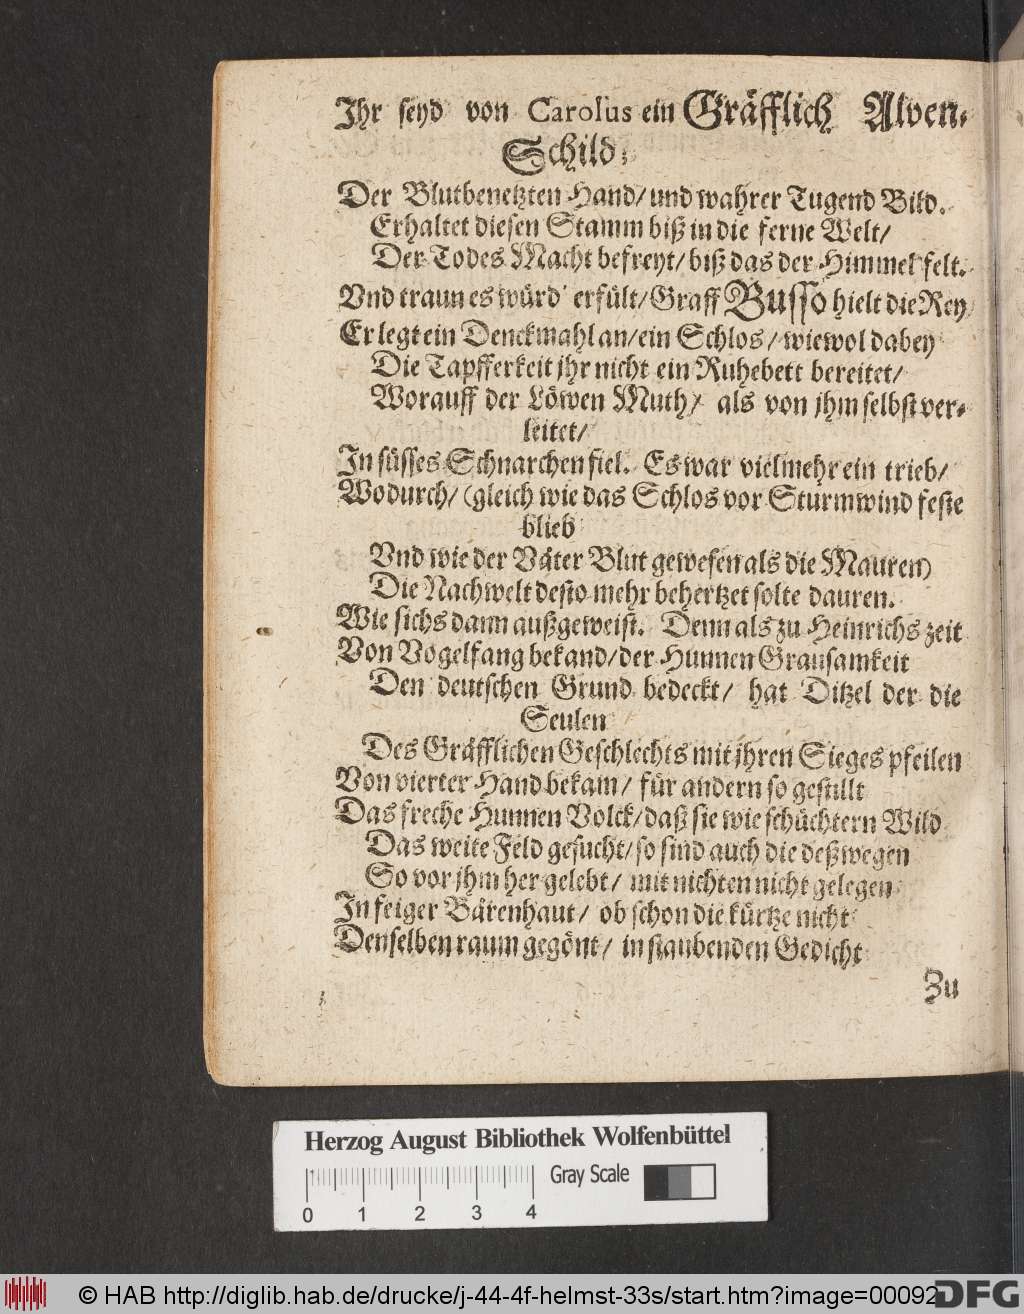 Ihr seyd von Carolus ein Gräfflich Alven-
Schild;
Der Blutbenetzten Hand/ und wahrer Tugend Bild.
Erhaltet diesen Stamm biß in die ferne Welt/
Der Todes Macht befreyt/ biß das der Himmel felt.
Vnd traun es würd' erfült/ Graff Busso hielt die Rey
Er legt ein Denckmahl an/ ein Schlos/ wiewol dabey
Die Tapfferkeit jhr nicht ein Ruhebett bereitet/
Worauff der Löwen Muth/ als von jhm selbst ver-
leitet/
In süsses Schnarchen fiel. Es war vielmehr ein trieb/
Wodurch/ (gleich wie das Schlos vor Sturmwind feste
blieb
Vnd wie der Väter Blut gewesen als die Mauren)
Die Nachwelt desto mehr behertzet solte dauren.
Wie sichs dann außgeweist. Denn als zu Heinrichs zeit
Von Vogelfang bekand/ der Hunnen Grausamkeit
Den deutschen Grund bedeckt/ hat Ditzel der die
Seulen
Des Gräfflichen Geschlechts mit jhren Sieges pfeilen
Von vierter Hand bekam/ für andern so gestillt
Das freche Hunnen Volck/ daß sie wie schüchtern Wild
Das weite Feld gesucht/ so sind auch die deßwegen
So vor jhm her gelebt/ mit nichten nicht gelegen
In feiger Bärenhaut/ ob schon die kürtze nicht
Denselben raum gegönt/ in staubenden Gedicht
Zu
Herzog August Bibliothek Wolfenbüttel
Gray Scale
0 1 2 3 4
© HAB http://diglib.hab.de/drucke/j-44-4f-helmst-33s/start.htm?image=00092
DFG